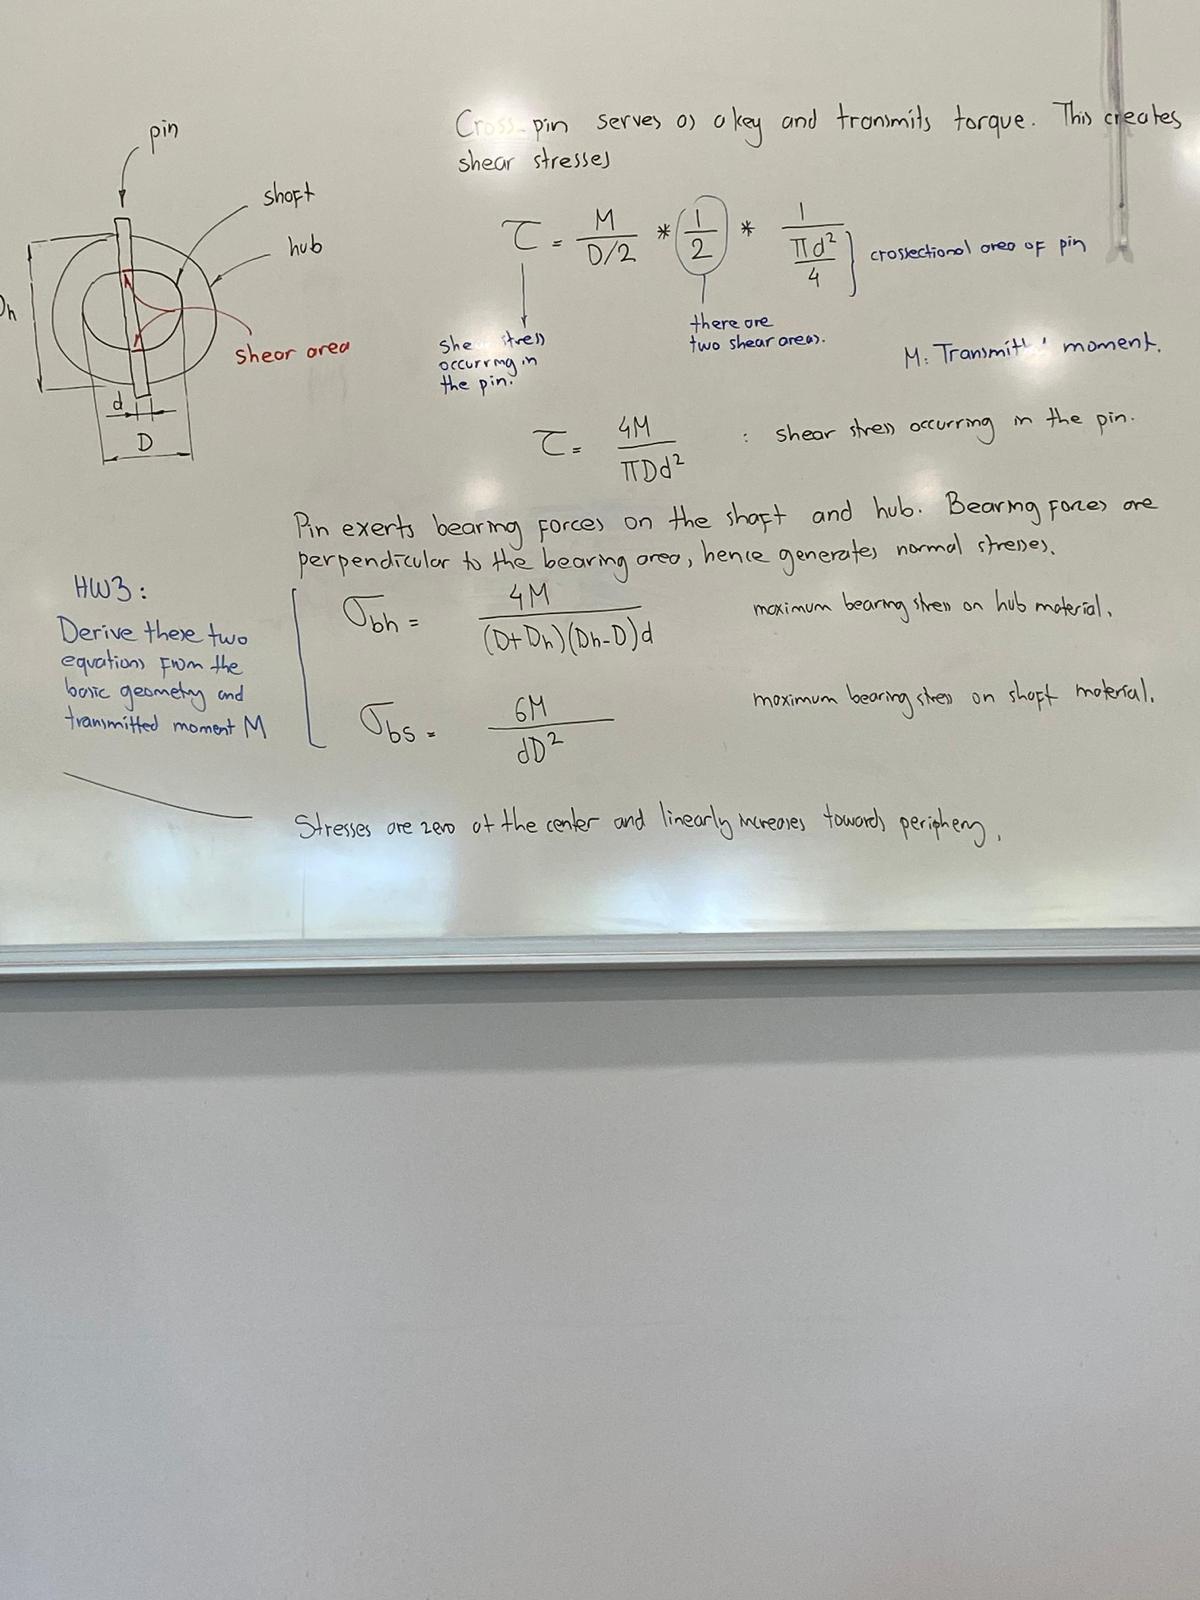 pin
shaft
hub
shear area
d
D
Cross-pin serves as a key and transmits torque. This creates
shear stresses
τ = M / D/2 * 1/2 * 1 / πd²/4 ] crossectional area of pin
shear stress
occurring in
the pin.
there are
two shear areas.
M: Transmitted moment.
τ = 4M / πDd² : shear stress occurring in the pin.
Pin exerts bearing forces on the shaft and hub. Bearing forces are
perpendicular to the bearing area, hence generates normal stresses.
HW3:
Derive these two
equations from the
basic geometry and
transmitted moment M
σbh = 4M / (D+Dh)(Dh-D)d maximum bearing stress on hub material.
σbs = 6M / dD² maximum bearing stress on shaft material.
Stresses are zero at the center and linearly increases towards periphery.